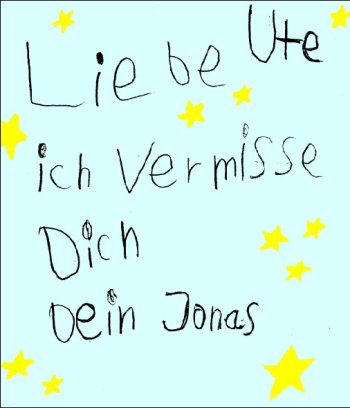 Liebe Ute
ich vermisse
Dich
Dein Jonas